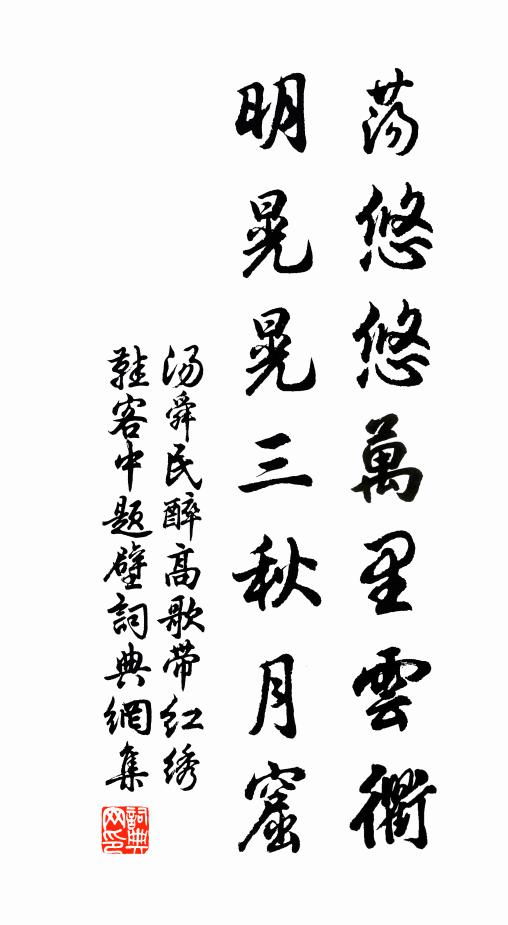 荡悠悠萬里雲衢
明晃晃三秋月窟
汤舜民醉高歌带红绣
鞋客中题壁詞典網集
詞典网印